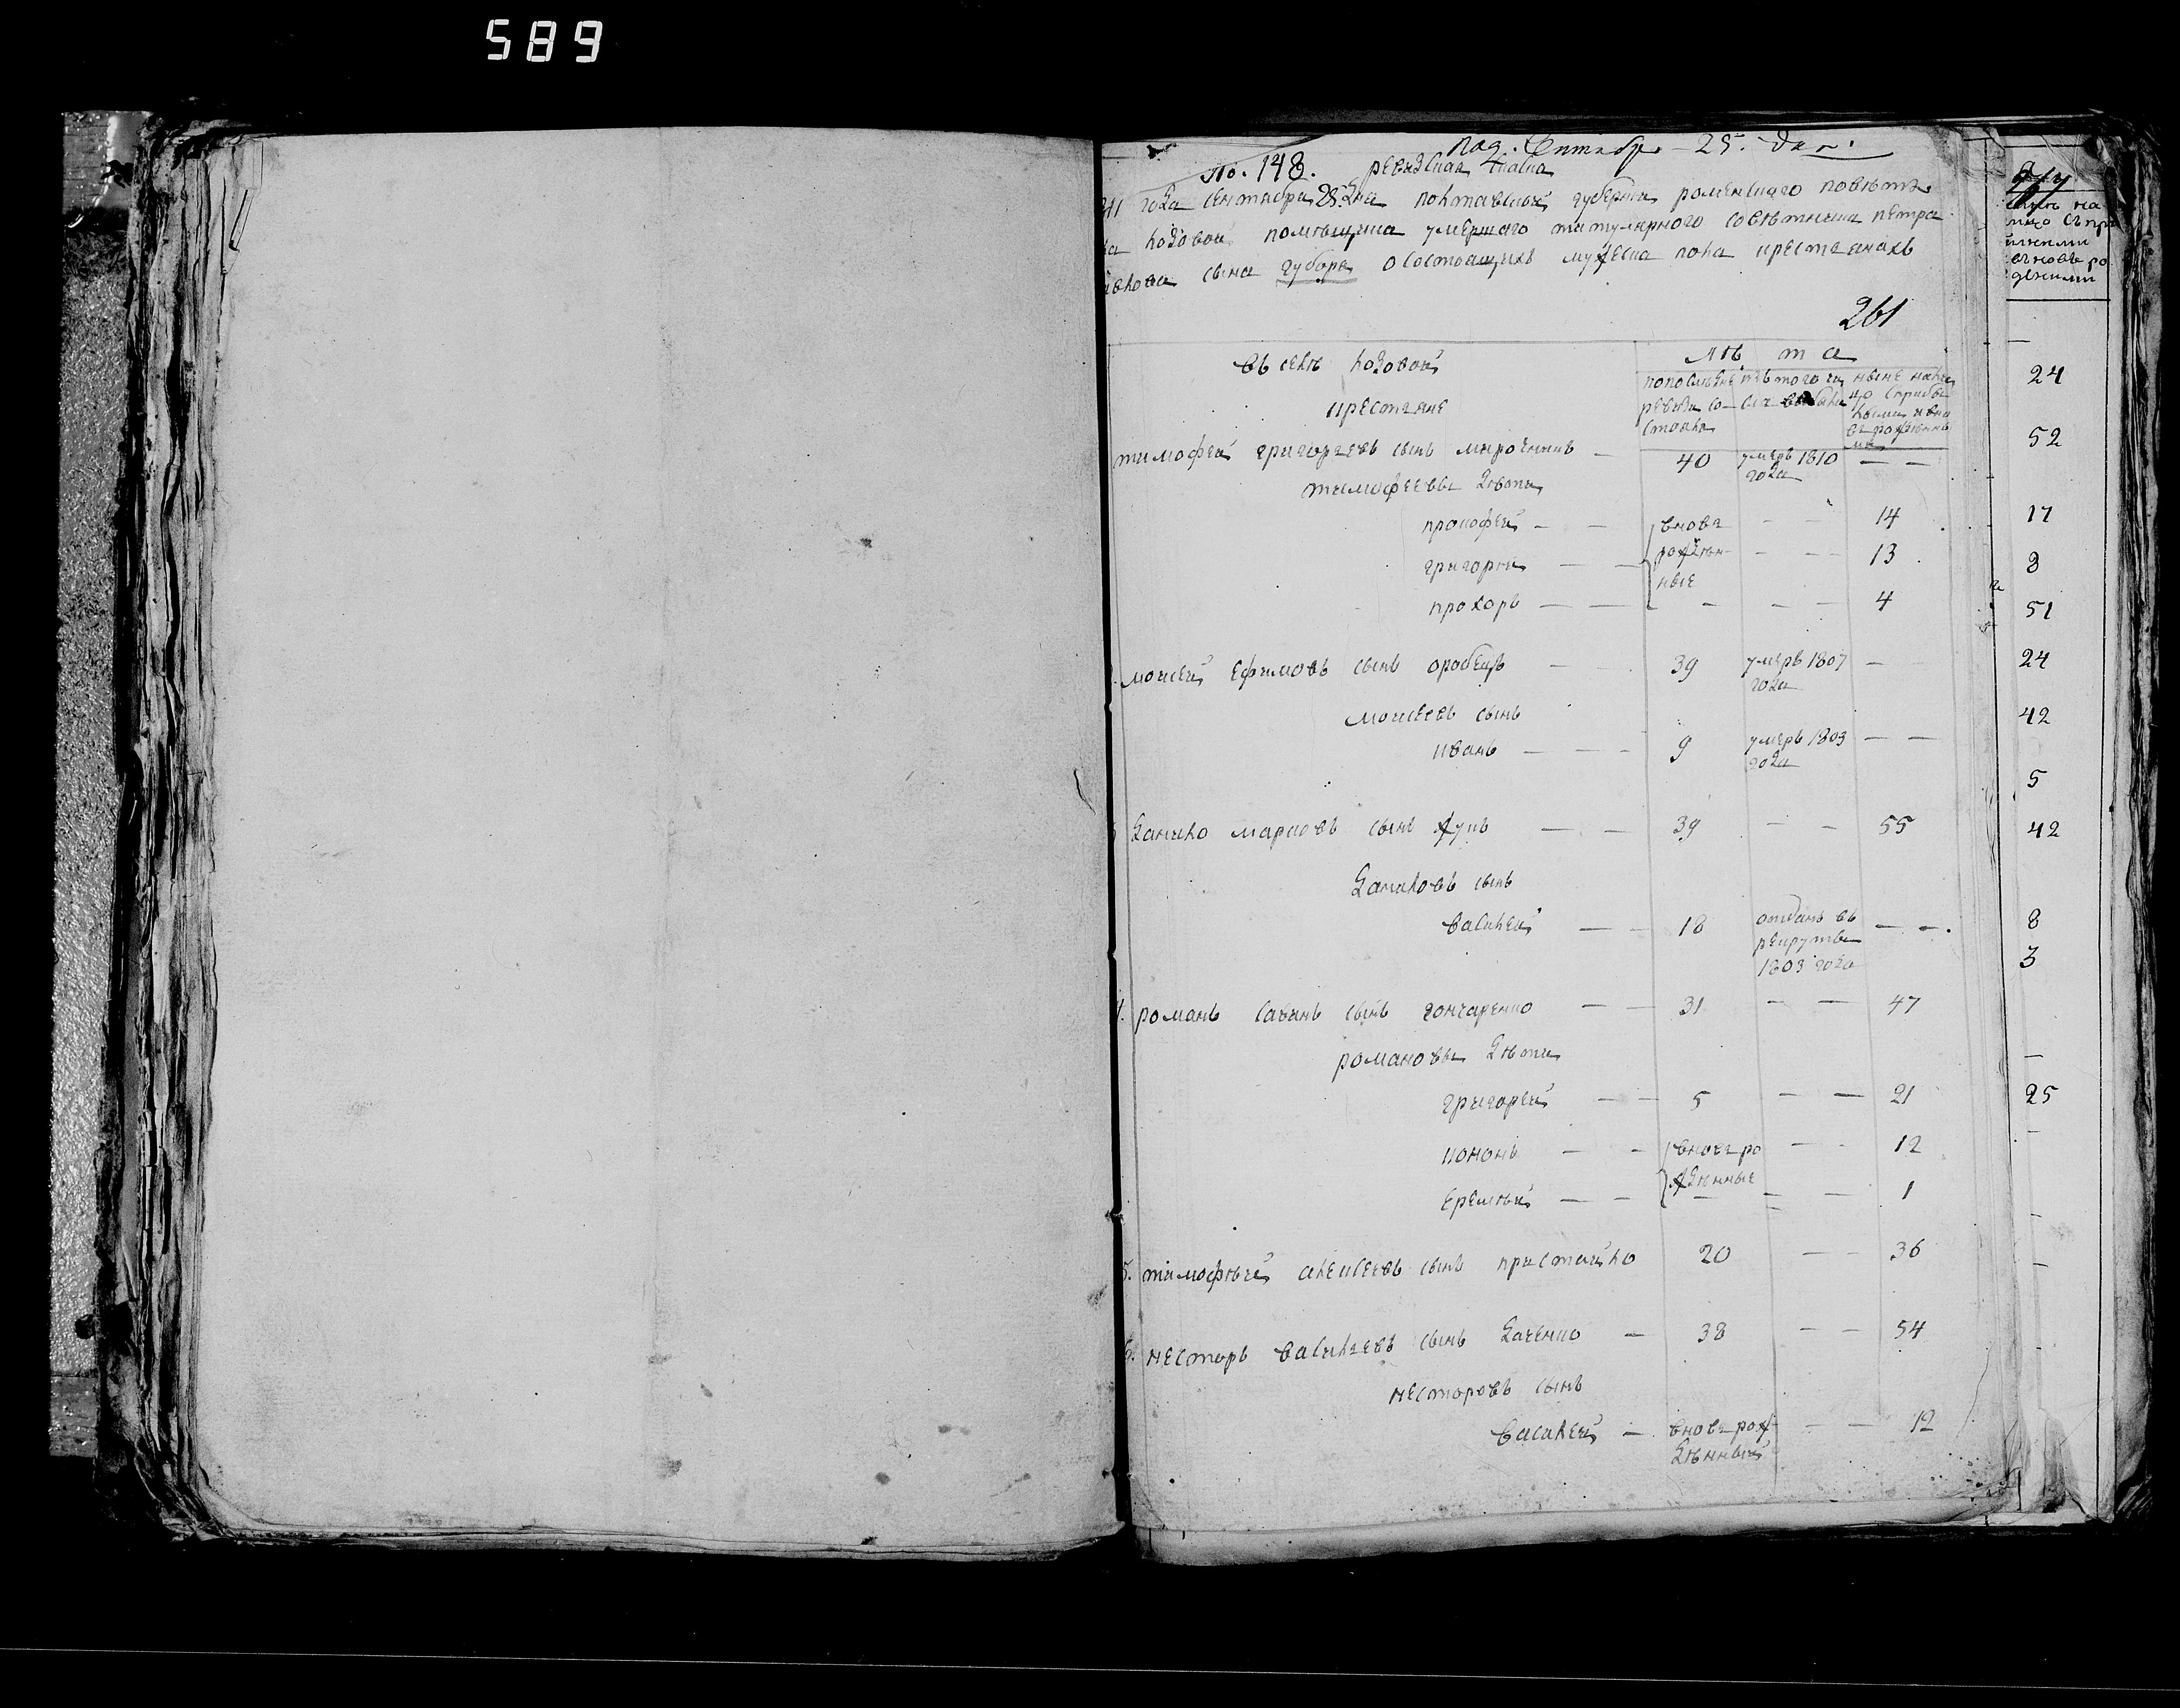 589
под. Сентября 25. дня.
No. 148. ревизская скаска
1811 года сентября 25. дня полтавской губернии роменского повета
села лозовой помещица умершаго титулярного советника петра
сына губора о состоящихъ мужеска пола крестянахъ
261
въ селе лозовой
крестяне
лѣта
по последне ревизи состояло
изъ того числа выбило
ныне налицо с прибылыми и вновь рожденними
тимофей григорьевъ сынъ мироченкъ — 40 умеръ 1810 года — —
тимофеевы дѣти
прокофей — — вновь рожденные — — 14
григорий — — — — 13
прохоръ — — — — — 4
моисей ефимовъ сынъ оробецъ — — 39 умеръ 1807 года —
моисеевъ сынъ
иванъ — — — 9 умеръ 1803 года — —
данило марковъ сынъ жукъ — — 39 — — 55
даниловъ сынъ
василей — — 18 отданъ въ рекруты 1803 года — —.
4. романъ савинъ сынъ гончаренко — — 31 — — 47
романовы дѣти
григорей — — 5 — — 21
кононъ — — вновь рожденные — — 12
еремѣй — — — — — 1
5. тимофѣей алексеевъ сынъ пристайло 20 — — 36
6. несторъ васильевъ сынъ даченко — 38 — — 54
несторовъ сынъ
василей — вновь рожденный — — 12
налицо съ при
вновь ро
деними
—
24
52
17
8
51
24
42
5
42
8
3
—
25
—